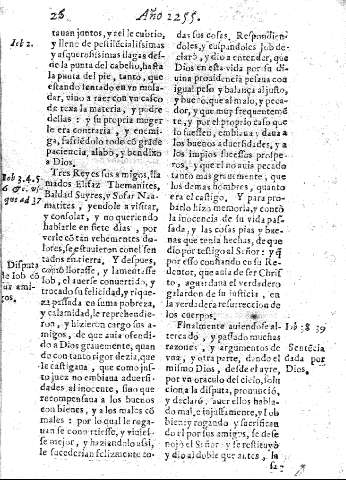 26
Año 1255.
tauan juntos, y zel le cubrio,
y lleno de pestilēcialissimas
y asquerosissimas llagas des-
de la punta del cabello, hasta
la punta del pie, tanto, que
estando sentado en vn mula-
dar, vino a raer con vn casco
de texa la materia, y podre
dellas: y su propria muger
le era contraria, y enemi-
ga, sufriēdolo todo cō grāde
paciencia, alabò, y bendixo
a Dios.
Tres Reyes sus amigos, lla-
mados Elifaz Themanites,
Baldad Suytes, y Sofar Naa-
matites, yendole a visitar,
y consolar, y no queriendo
hablarle en siete dias, por
verle cō tan vehementes do-
lores, se estuuieron con el sen-
tados en tierra. Y despues,
como llorasse, y lamentasse
Iob, el auerse conuertido, y
trocado su felicidad, y rique-
za passada en suma pobreza,
y calamidad, le reprehendie-
ron, y hizieron cargo sus a-
migos, de que auia ofendi-
do a Dios grauemente, quan-
do con tanto rigor dezia, que
le castigaua, que como jus-
to juez no embiaua aduersi-
dades al inocente, sino que
recompensaua a los buenos
con bienes, y a los malos cō
males: por lo qual le roga-
uan se conuirtiesse, y viuies-
se mejor, y haziendolo assi,
le sucederian felizmente to-
Iob 2.
Iob 3.4.5
6 &c. vs-
que ad 37
Disputa
de Iob cō
sus ami-
gos.
das sus cosas. Respondien-
doles, y culpandoles Iob de-
clarò, y dio a entender, que
Dios en esta vida por su di-
uina prouidencia pesaua con
igual peso y balança al justo,
y bueno, que al malo, y peca-
dor, y que muy frequentemē-
te, y por el proprio caso que
lo fuessen, embiaua, y daua a
los buenos aduersidades, y a
los impios sucessos prospe-
ros, y que el no auia pecado
tanto mas grauemente, que
los demas hombres, quanto
era el castigo. Y para pro-
barlo hizo memoria, y contò
la inocencia de su vida pas-
sada, y las cosas pias y bue-
nas que tenia hechas, de que
dio por testigo al Señor: y q̄
por esso constando en su Re-
dentor, que auia de ser Chris-
to, aguardaua el verdadero
galardon de su justicia, en
la verdadera resurreccion de
los cuerpos.
Finalmente auiendose al-
tercado, y passado muchas
razones, y argumentos de
vna, y otra parte, dando el
mismo Dios, desde el ayre,
por vn oraculo del cielo, solu-
cion a la disputa, pronunciò,
y declarò, auer ellos habla-
do mal, e injustamente, y Iob
bien: y rogando y sacrifican-
do el por sus amigos, se dese-
nojò el Señor: y se restituyò
y dio al doble que antes, la
Iob 38 39
Sentēcia
dada por
Dios.